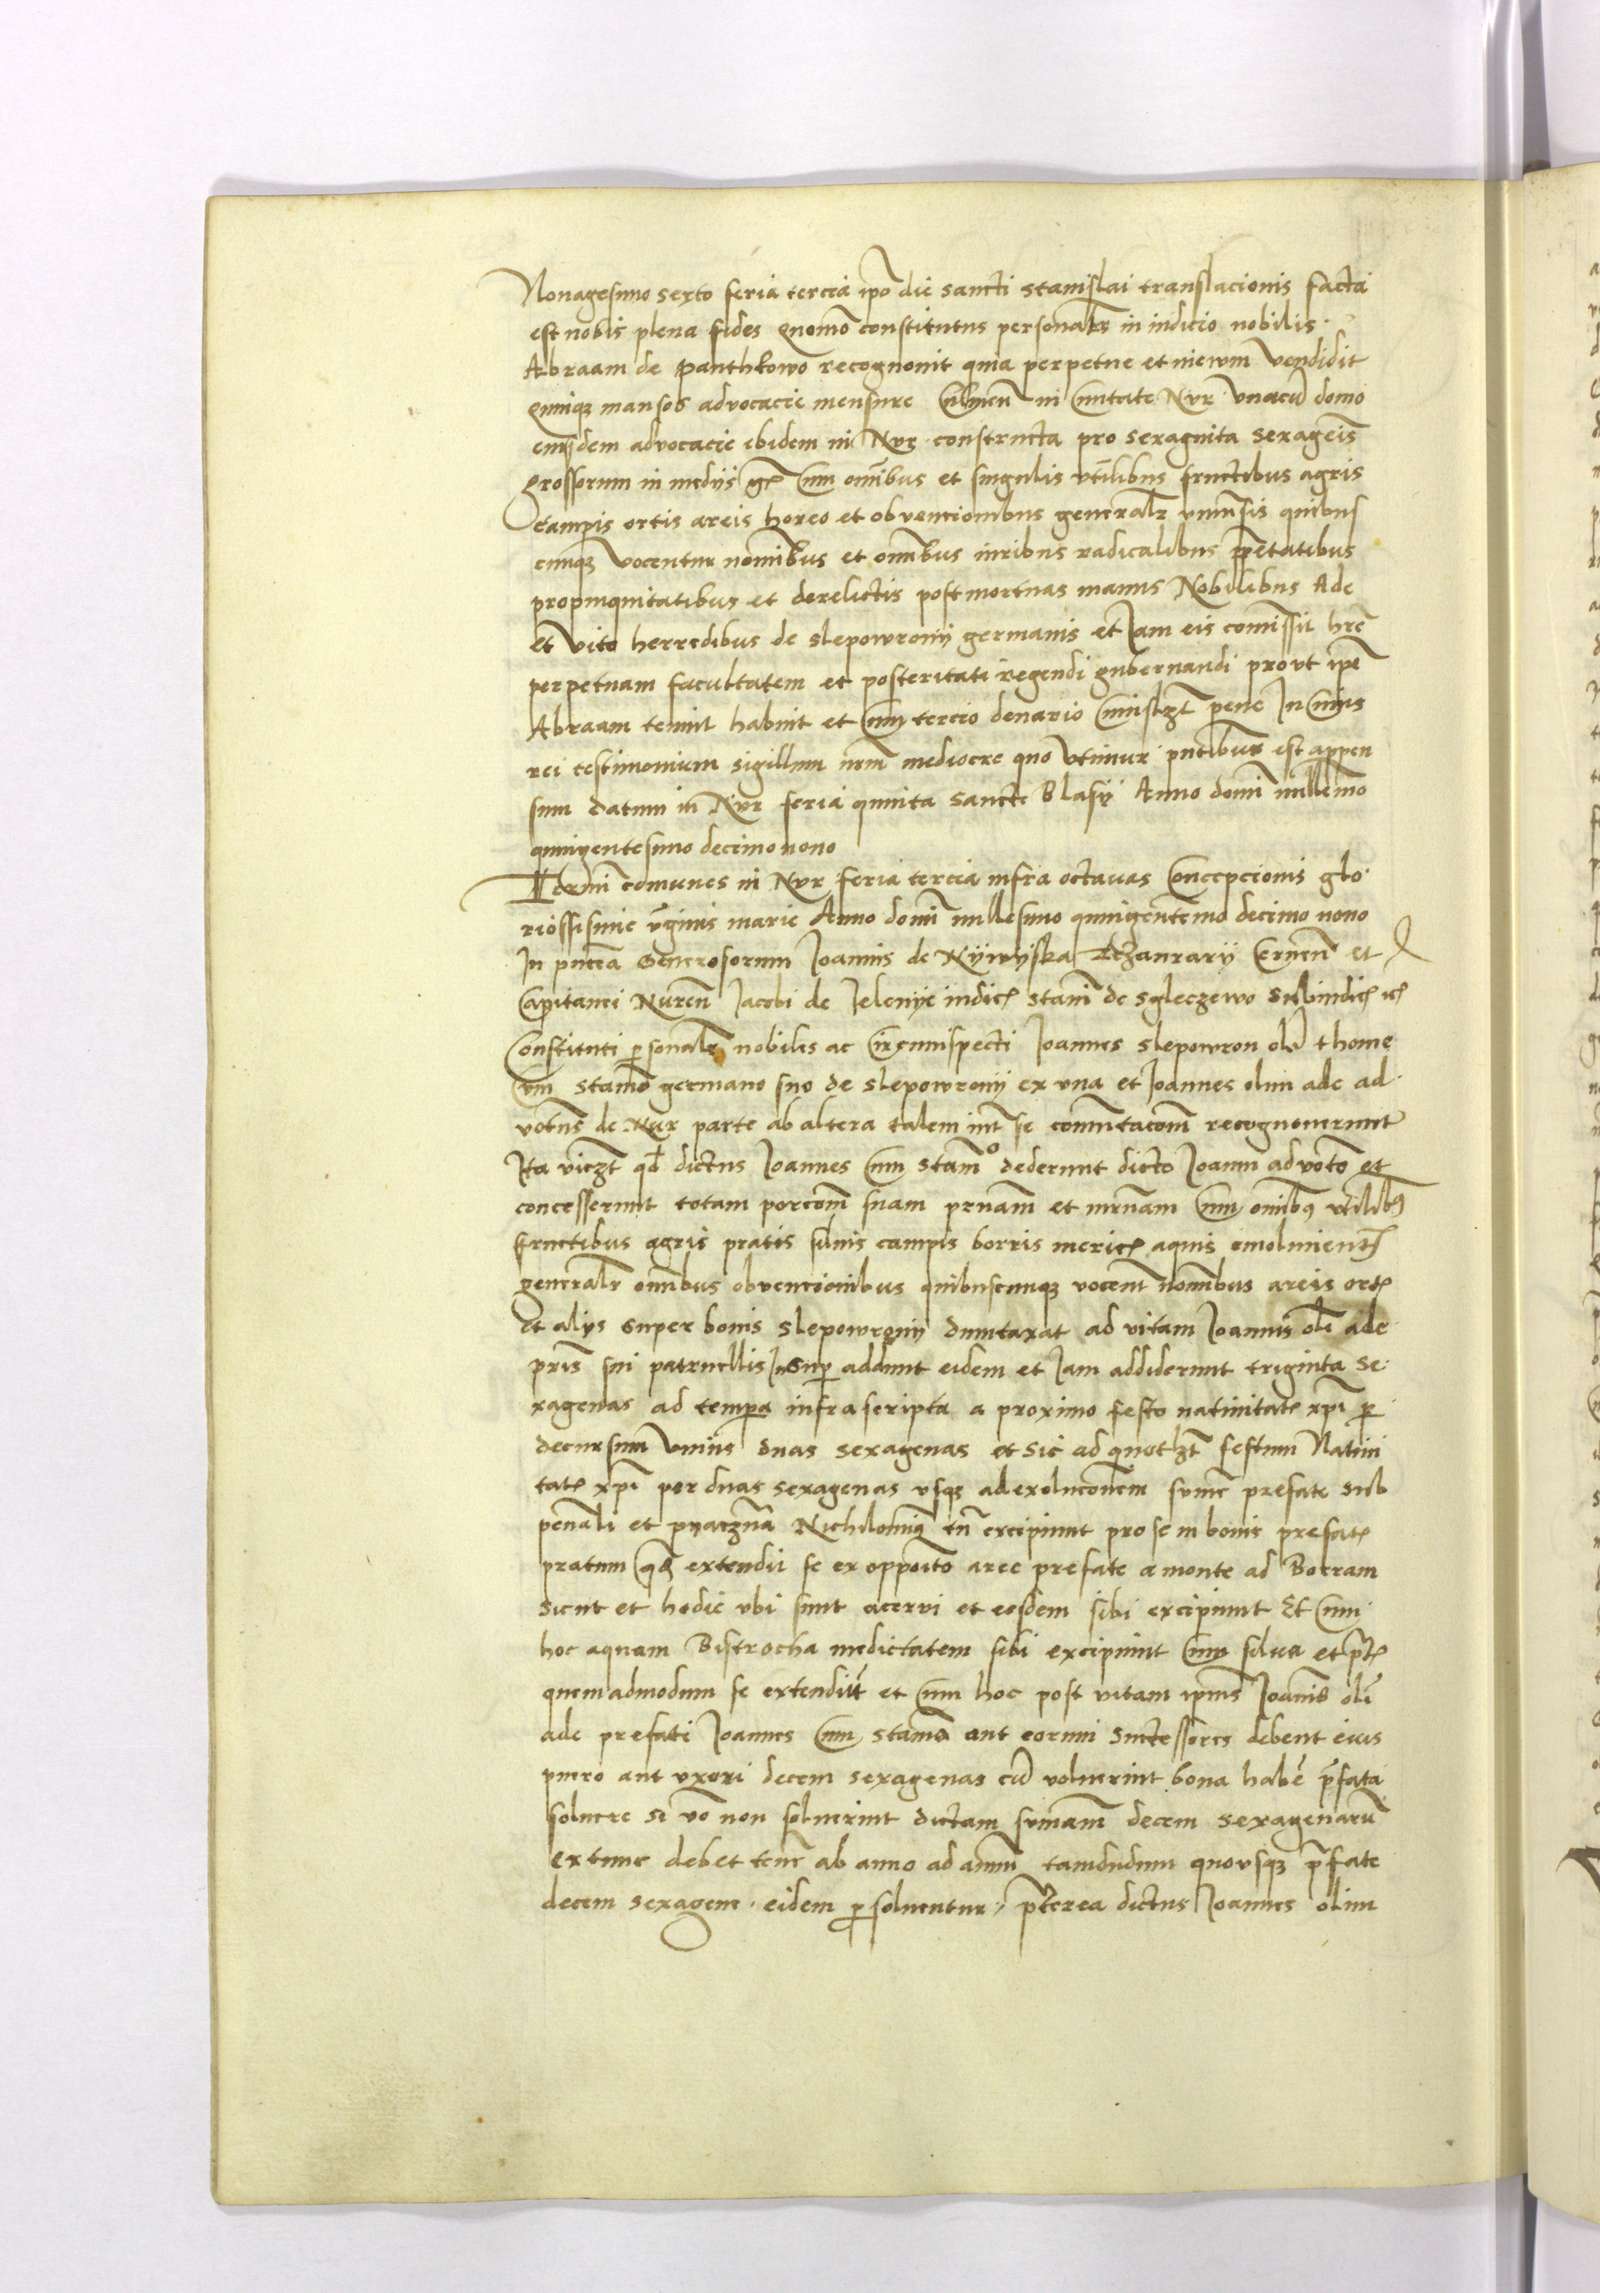 Nonagesimo sexto feria tercia ipo die sancti Stanislai translacionis facta
est nobis plena fides quomo constitutus personalr in iudicio nobilis
Abraam de Panthkowo recognouit quia perpetue et in ewm vendidit
quinqz mansos advocacie mensure Culmen in Ciuitate Nvr vnacu domo
eiusdem advocacie ibidem in Nvr constructa pro sexaginta sexageis
grossorum in medijs gr Cum omibus et singulis vtilibus fructibus agris
campis ortis areis horeo et obvencionibus generalr vniuersis quibus
cunqz vocentur nomibus et omibus iuribus radicalibus ppetatibus
propinquitatibus et derelictis post mortuas manus Nobilibus Ade
et Vito herredibus de Slepowrony germanis et Jam eis comissit hre
perpetuam facultatem et posteritati regendi gubernandi provt ipe
Abraam tenuit habuit et Cum tercio denario pene In Cuius
rei testimonium sigillum nrm mediocre quo vtimur pntibus est appen
sum datum in Nvr feria quinta sancti Blasij Anno domi millemo
quingentesimo decimo nono
Termi comunes in Nvr feria tercia infra octavas Concepcionis glo
riossisime vginis marie Anno domi millesimo quingentemo decimo nono
In pntia Generosorum Joannis de Nywyska Thezaurarij Cernen et
Capitanei Nuren Jacobi de Jelenye iudic Stani de Sgleczewo Subiudic
Constituti psonalr nobiles ac Circumspecti Joannes Slepowron oli thome
cum Stamo germano suo de Slepowrony ex vna et Joannes olim ade ad
votus de Nur parte ab altera talem int se comutacom recognouerunt
Ita viczt qd dictus Joannes Cum Stamo dederunt dicto Joanni advoto et
concesserunt totam porcom suam prnam et mrnam Cum omibq vtilibq
fructibus agris pratis siluis campis borris meric aquis emolument
generalr omibus obvencionibus quibuscunqz vocent nomibus areis ort
et alys super bonis Slepowrony dumtaxat ad vitam Joannis oli ade
pris sui patruellis Insup addunt eidem et Jam addiderunt triginta se
xagenas ad tempa infrascripta a proximo festo natiuitat xpi p
decursum vnius duas sexagenas et sic ad quotlzt festum Natiui
tat xpi per duas sexagenas vsqz ad exolucionem sume prefate sub
penali et Nichilominq tn excipiunt pro se in bonis prefat
pratum qd extendit se ex oppoito aree prefate a monte ad Borram
sicut et hodie vbi sunt acervi et eosdem sibi excipiunt Et Cum
hoc aquam Bistrocha medietatem sibi excipiunt Cum silua et prt
quemadmodum se extendut et Cum hoc post vitam ipius Joanis oli
ade prefati Joannes Cum Stamo aut eorum Suctessores debent eius
puero aut vxori decem sexagenas cu voluerint bona habe pfata
soluere si vo non soluerint dictam sumam decem sexagenaru
extunc debet tene ab anno ad annu tamdudum quovsqz pfate
decem sexagene eidem psoluentur pterea dictus Joannes olim